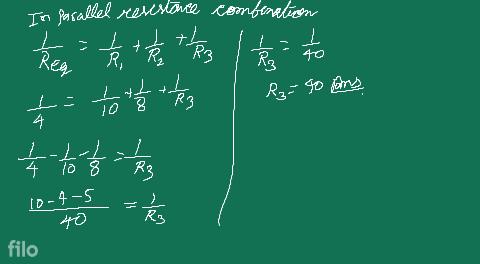 In parallel resistance combination
1/Req = 1/R1 + 1/R2 + 1/R3
1/4 = 1/10 + 1/8 + 1/R3
1/4 - 1/10 - 1/8 = 1/R3
10-4-5/40 = 1/R3
1/R3 = 1/40
R3 = 40 Ans.
filo